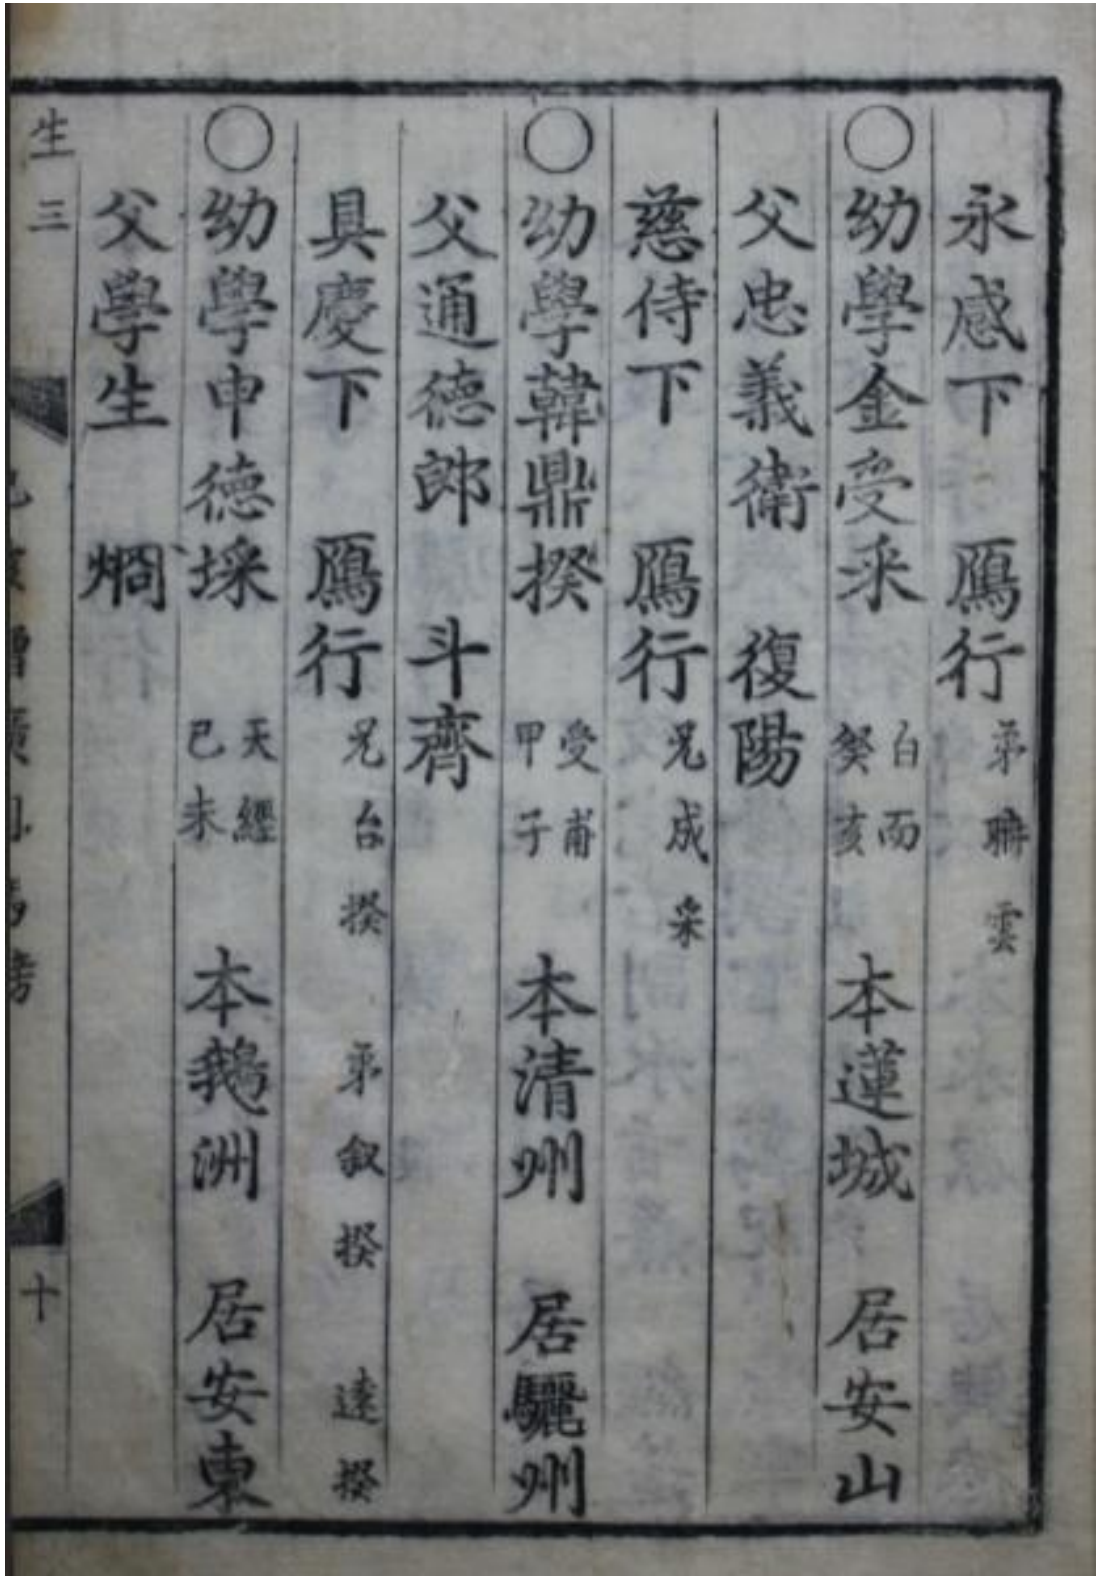 永感下　鴈行　弟聃雲
○幼學金受采　白而癸亥　本蓮城　居安山
父忠義衛　復陽
慈侍下　鴈行　兄成采
○幼學韓鼎揆　受甫甲子　本清州　居驪州
父通德郎　斗齊
具慶下　鴈行　兄台揆　弟敘揆　逵揆
○幼學申德埰　天經己未　本鵝洲　居安東
父學生　烱
生三
十